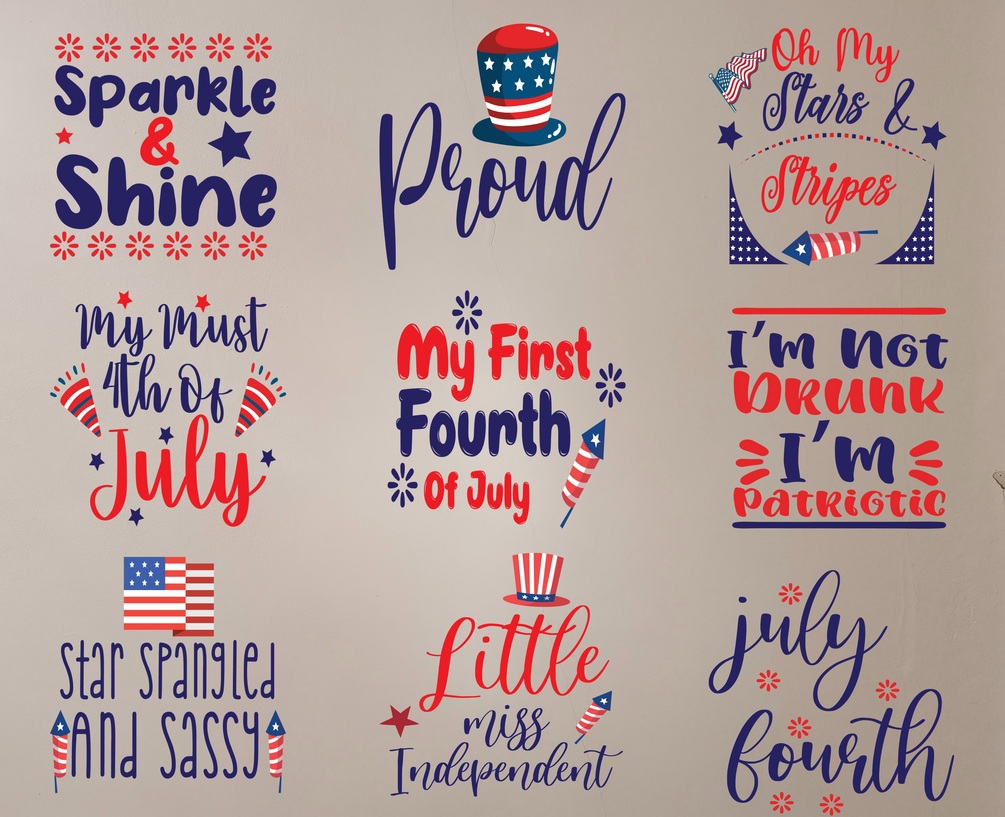 Sparkle
&
Shine
Proud
Oh My
Stars &
Stripes
My Must
4th Of
July
My First
Fourth
Of July
I'm Not
Drunk
I'm
Patriotic
Star Spangled
And Sassy
Little
miss
Independent
july
fourth